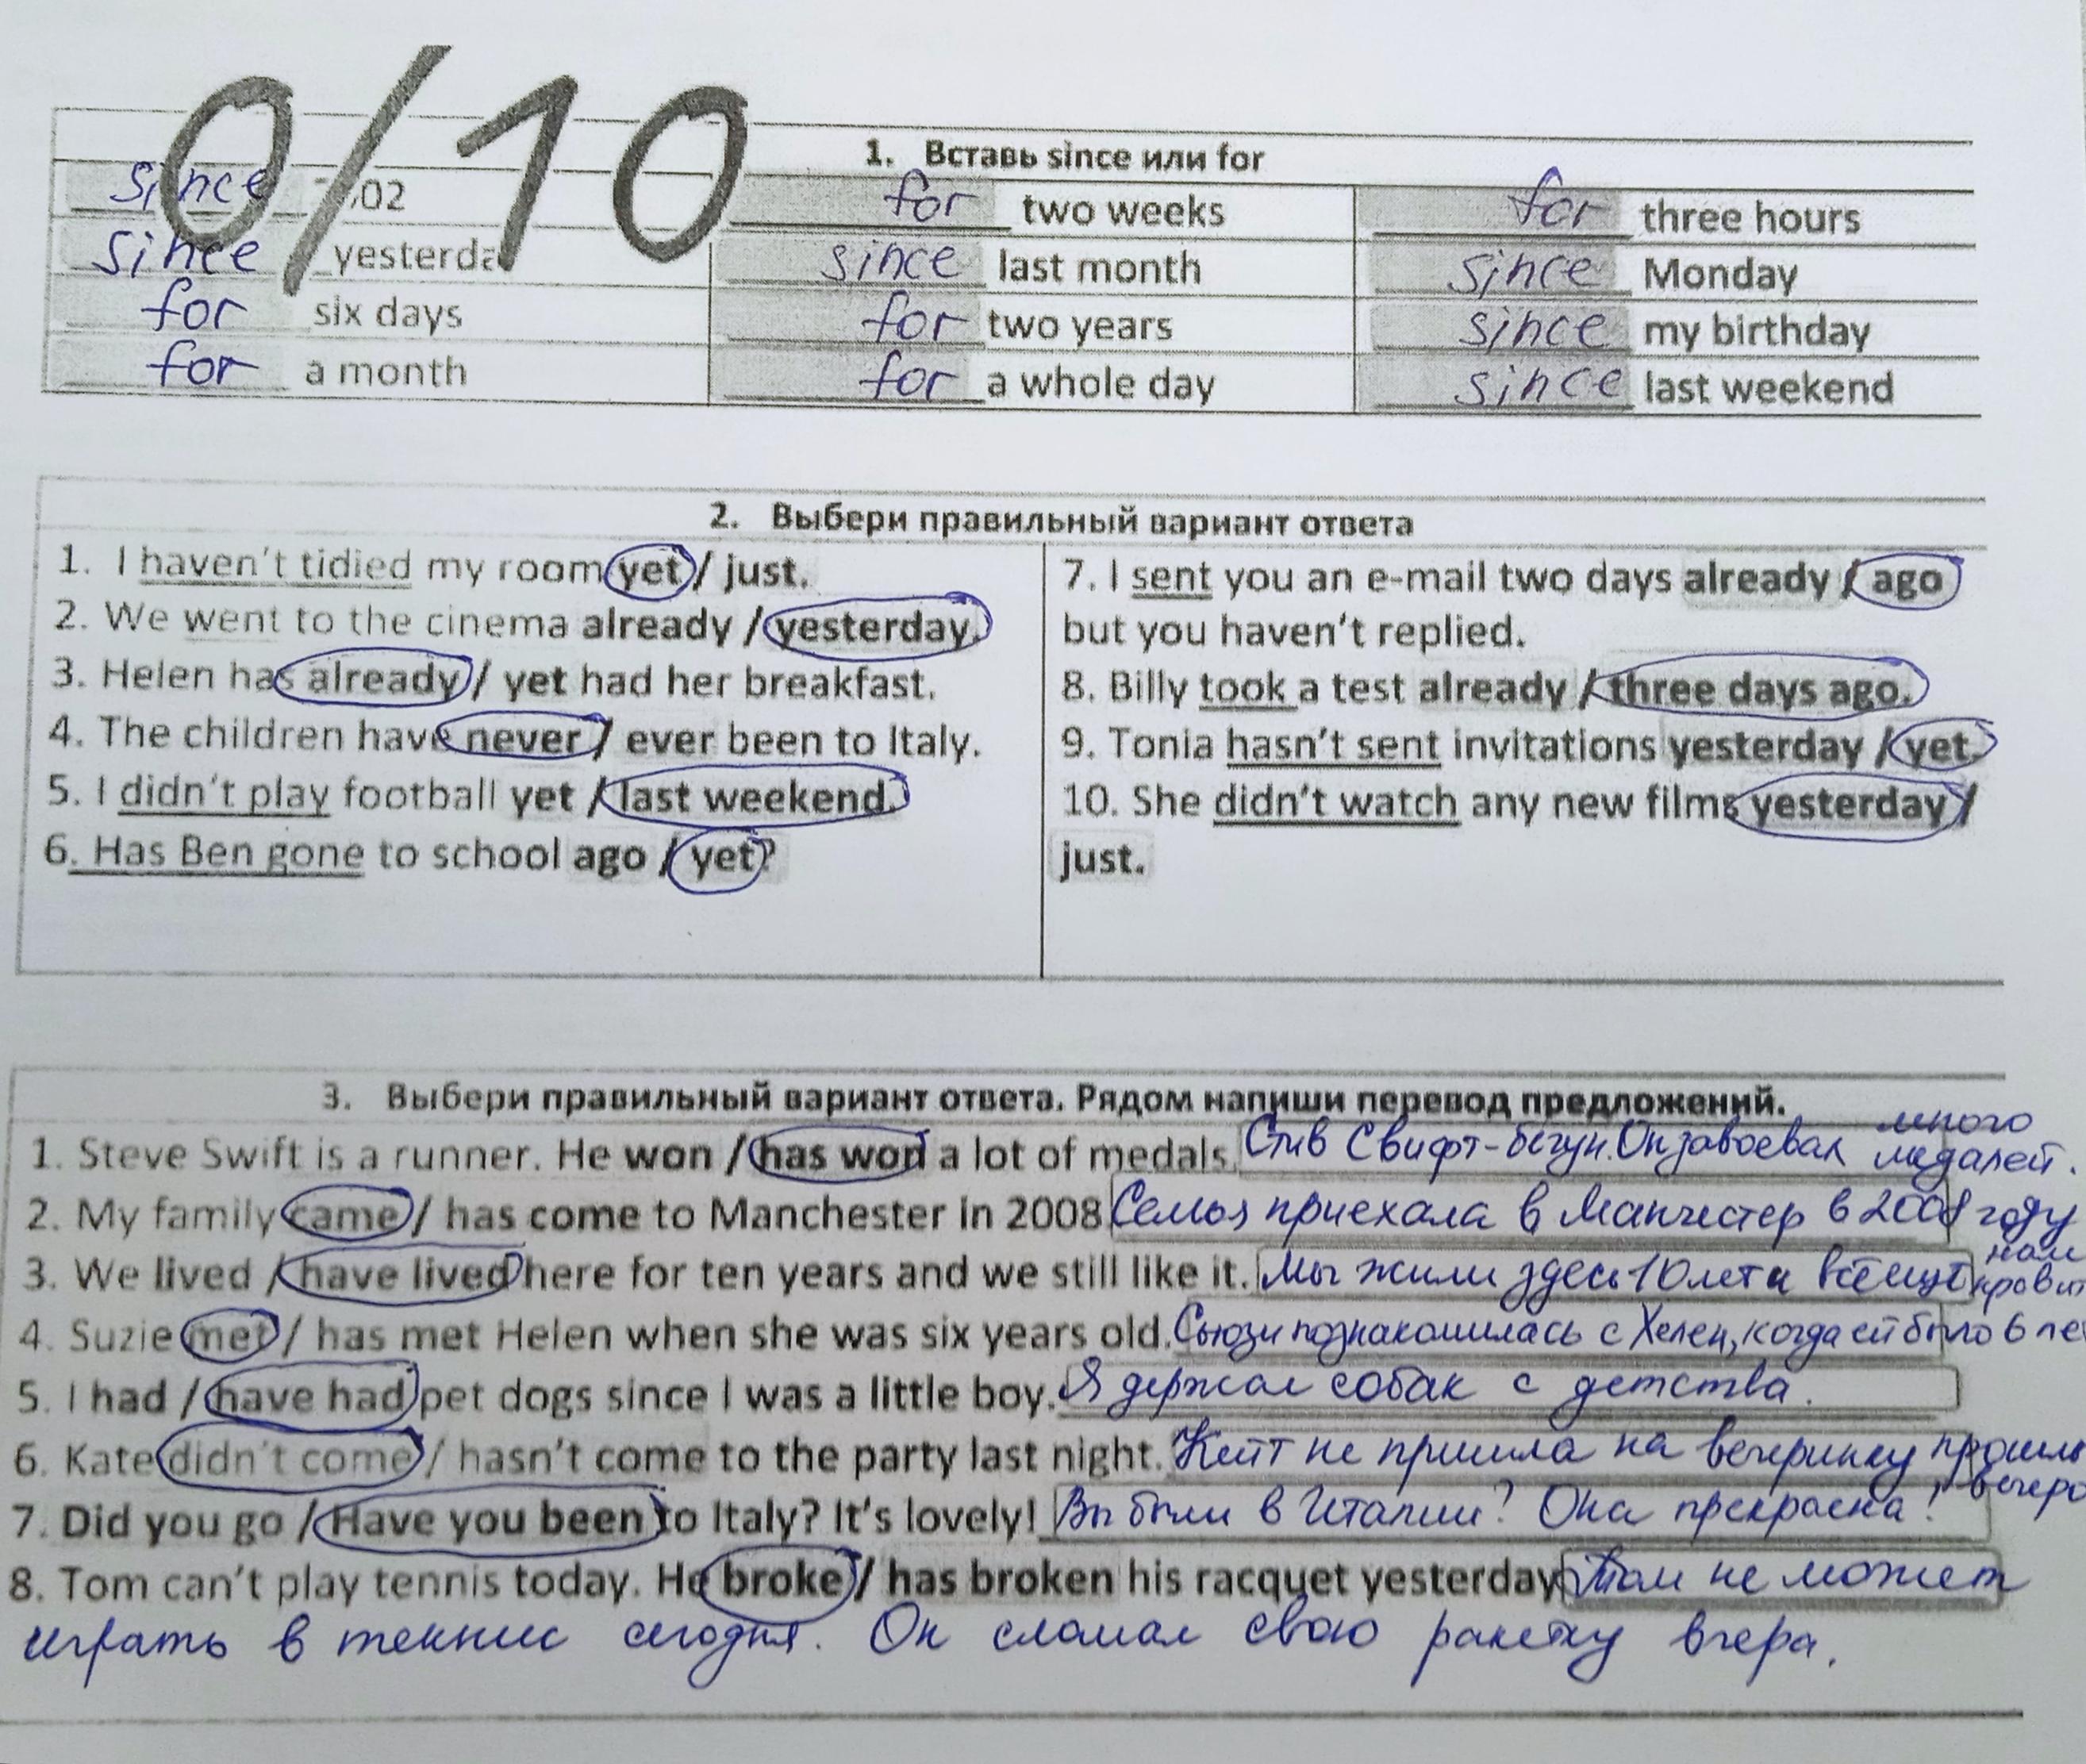 0/10
1. Вставь since или for
since 02 for two weeks for three hours
since yesterda since last month since Monday
for six days for two years since my birthday
for a month for a whole day since last weekend
2. Выбери правильный вариант ответа
1. I haven't tidied my room yet / just.
2. We went to the cinema already / yesterday.
3. Helen has already / yet had her breakfast.
4. The children have never / ever been to Italy.
5. I didn't play football yet / last weekend.
6. Has Ben gone to school ago / yet?
7. I sent you an e-mail two days already / ago
but you haven't replied.
8. Billy took a test already / three days ago.
9. Tonia hasn't sent invitations yesterday / yet.
10. She didn't watch any new films yesterday /
just.
3. Выбери правильный вариант ответа. Рядом напиши перевод предложений.
1. Steve Swift is a runner. He won / has won a lot of medals. Стив Свифт-бегун. Он завоевал много медалей.
2. My family came / has come to Manchester in 2008 Семья приехала в Манчестер в 2008 году
3. We lived / have lived here for ten years and we still like it. Мы жили здесь 10 лет и всё ещё нам
4. Suzie met / has met Helen when she was six years old. Сьюзи познакомилась с Хелен, когда ей было 6 ле
5. I had / have had pet dogs since I was a little boy. Я держал собак с детства.
6. Kate didn't come / hasn't come to the party last night. Кейт не пришла на вечеринку прошлы вечеро
7. Did you go / Have you been to Italy? It's lovely! Вы были в Италии? Она прекрасна!
8. Tom can't play tennis today. He broke / has broken his racquet yesterday Том не может
играть в теннис сегодня. Он сломал свою ракетку вчера.